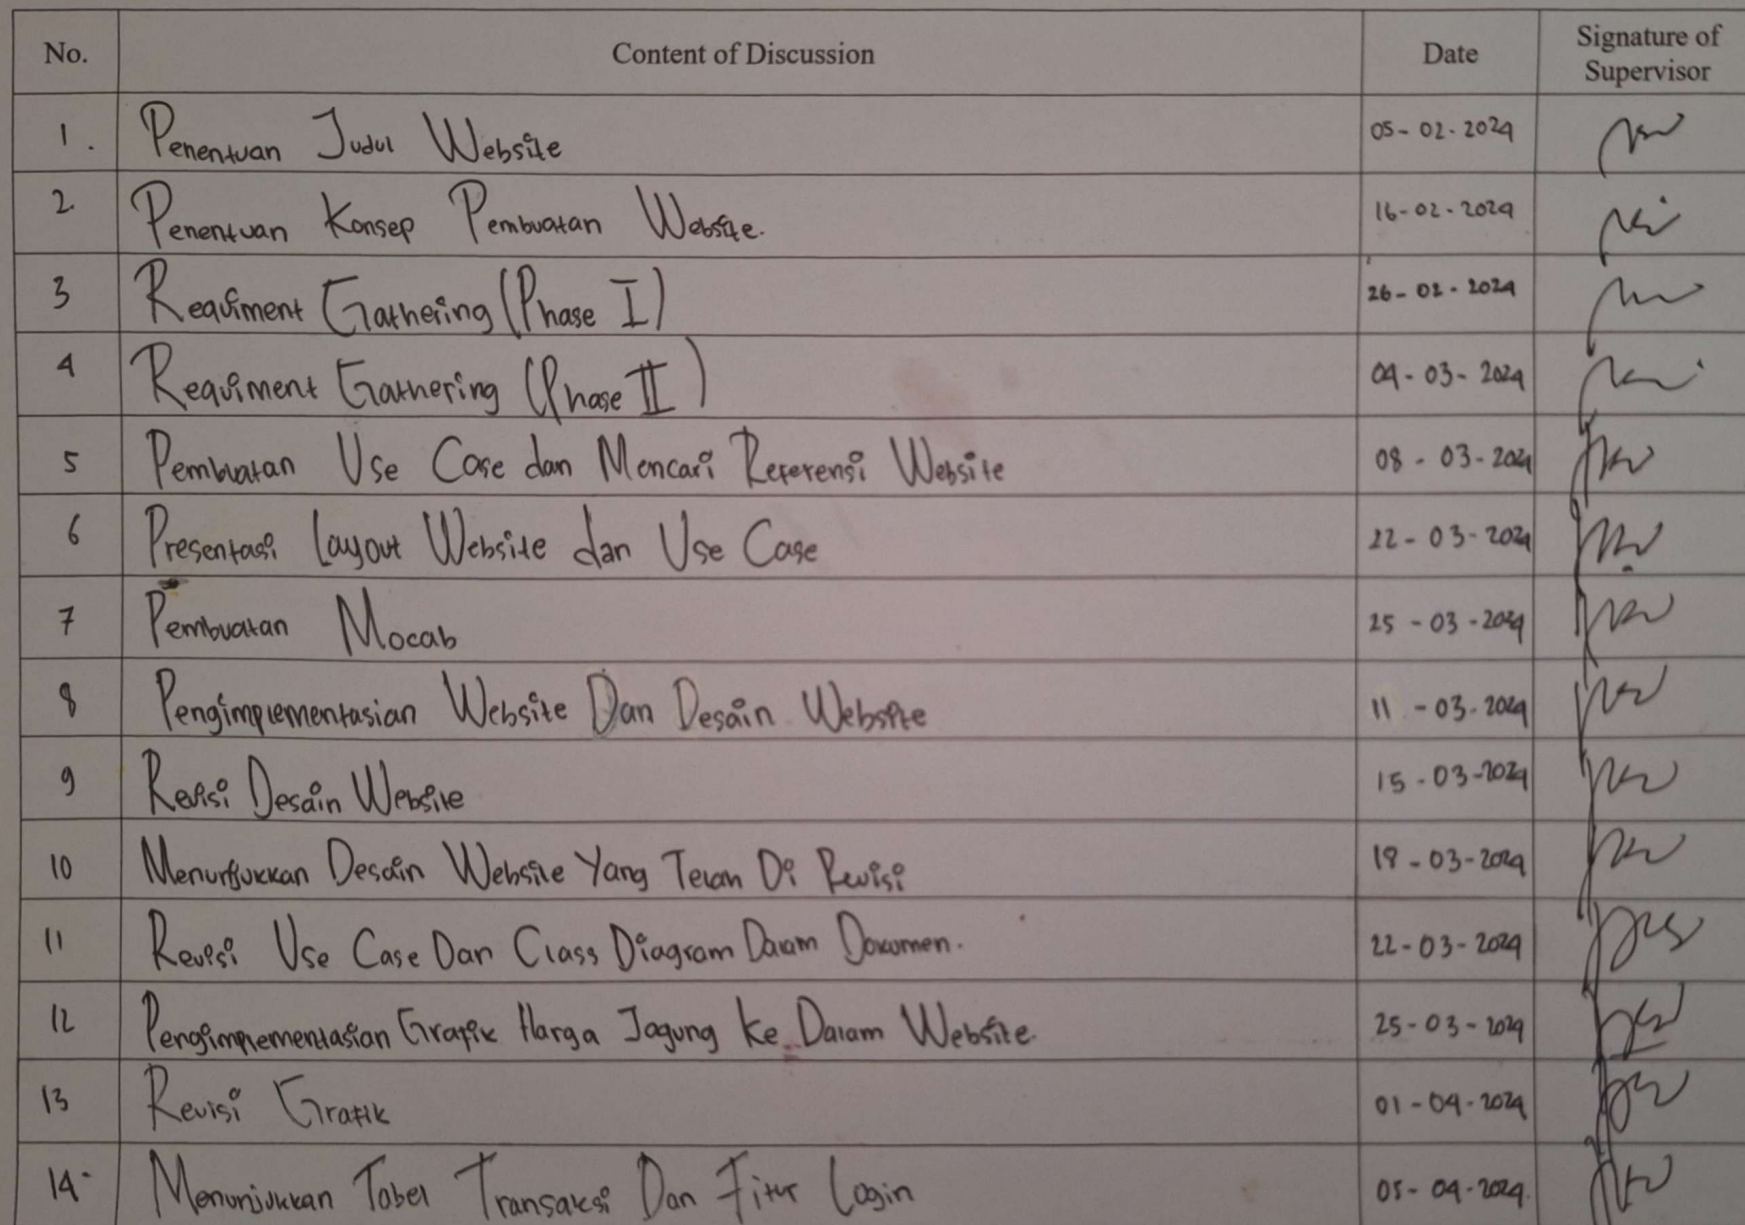 No. Content of Discussion Date Signature of Supervisor
1. Penentuan Judul Website 05-02-2024
2 Penentuan Konsep Pembuatan Website. 16-02-2024
3 Requiment Gathering (Phase I) 26-02-2024
4 Requiment Gathering (Phase II) 04-03-2024
5 Pembuatan Use Case dan Mencari Referensi Website 08-03-2024
6 Presentasi Layout Website dan Use Case 22-03-2024
7 Pembuatan Mocab 25-03-2024
8 Pengimplementasian Website Dan Desain Website 11-03-2024
9 Revisi Desain Website 15-03-2024
10 Menunjukkan Desain Website Yang Telah Di Revisi 18-03-2024
11 Revisi Use Case Dan Class Diagram Dalam Dokumen. 22-03-2024
12 Pengimplementasian Grafik Harga Jagung Ke Dalam Website. 25-03-2024
13 Revisi Grafik 01-04-2024
14 Menunjukkan Tabel Transaksi Dan Fitur Login 05-04-2024